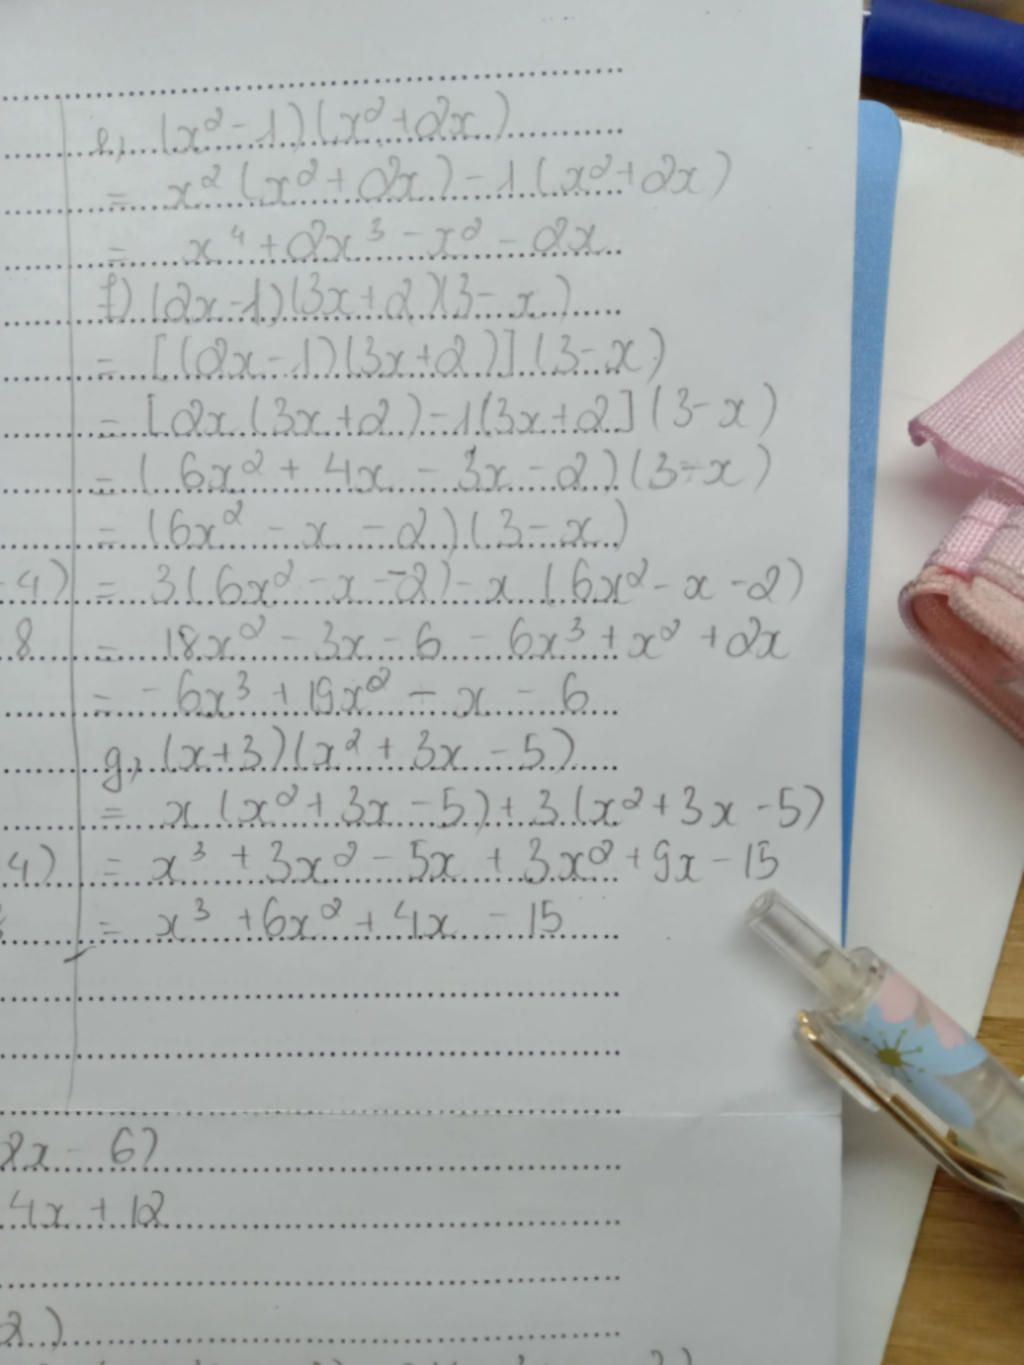 e, (x² - 1)(x² + 2x)
= x² (x² + 2x) - 1 (x² + 2x)
= x⁴ + 2x³ - x² - 2x
f) (2x - 1)(3x + 2)(3 - x)
= [(2x - 1)(3x + 2)] (3 - x)
= [2x (3x + 2) - 1(3x + 2] (3 - x)
= (6x² + 4x - 3x - 2)(3 - x)
= (6x² - x - 2)(3 - x)
4) = 3(6x² - x - 2) - x (6x² - x - 2)
8 = 18x² - 3x - 6 - 6x³ + x² + 2x
= - 6x³ + 19x² - x - 6
g, (x + 3)(x² + 3x - 5)
= x (x² + 3x - 5) + 3 (x² + 3x - 5)
4) = x³ + 3x² - 5x + 3x² + 9x - 15
= x³ + 6x² + 4x - 15
2x - 6)
4x + 12
2)